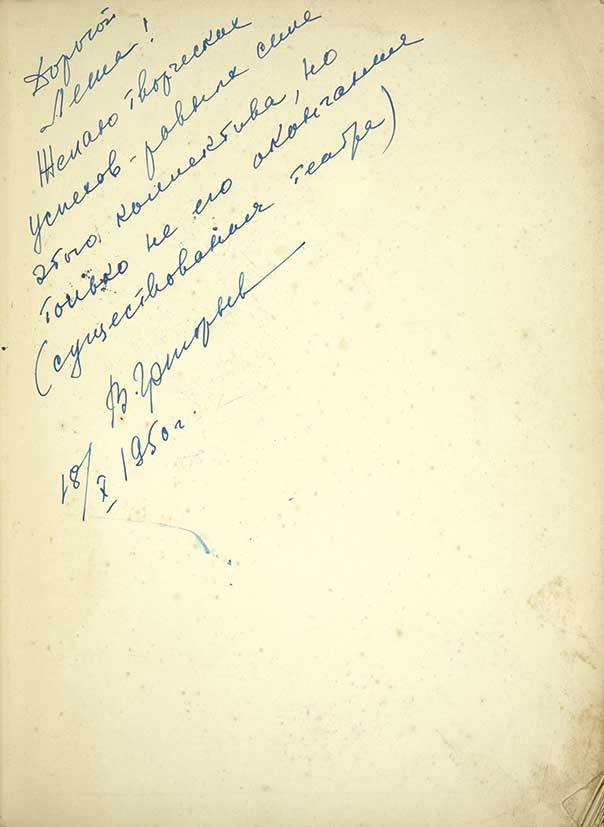 Дорогой
Леша!
Желаю творческих
успехов - равных силе
этого коллектива, но
только не его окончания
(существования театра)
В. Григорьев
18/X 1950 г.